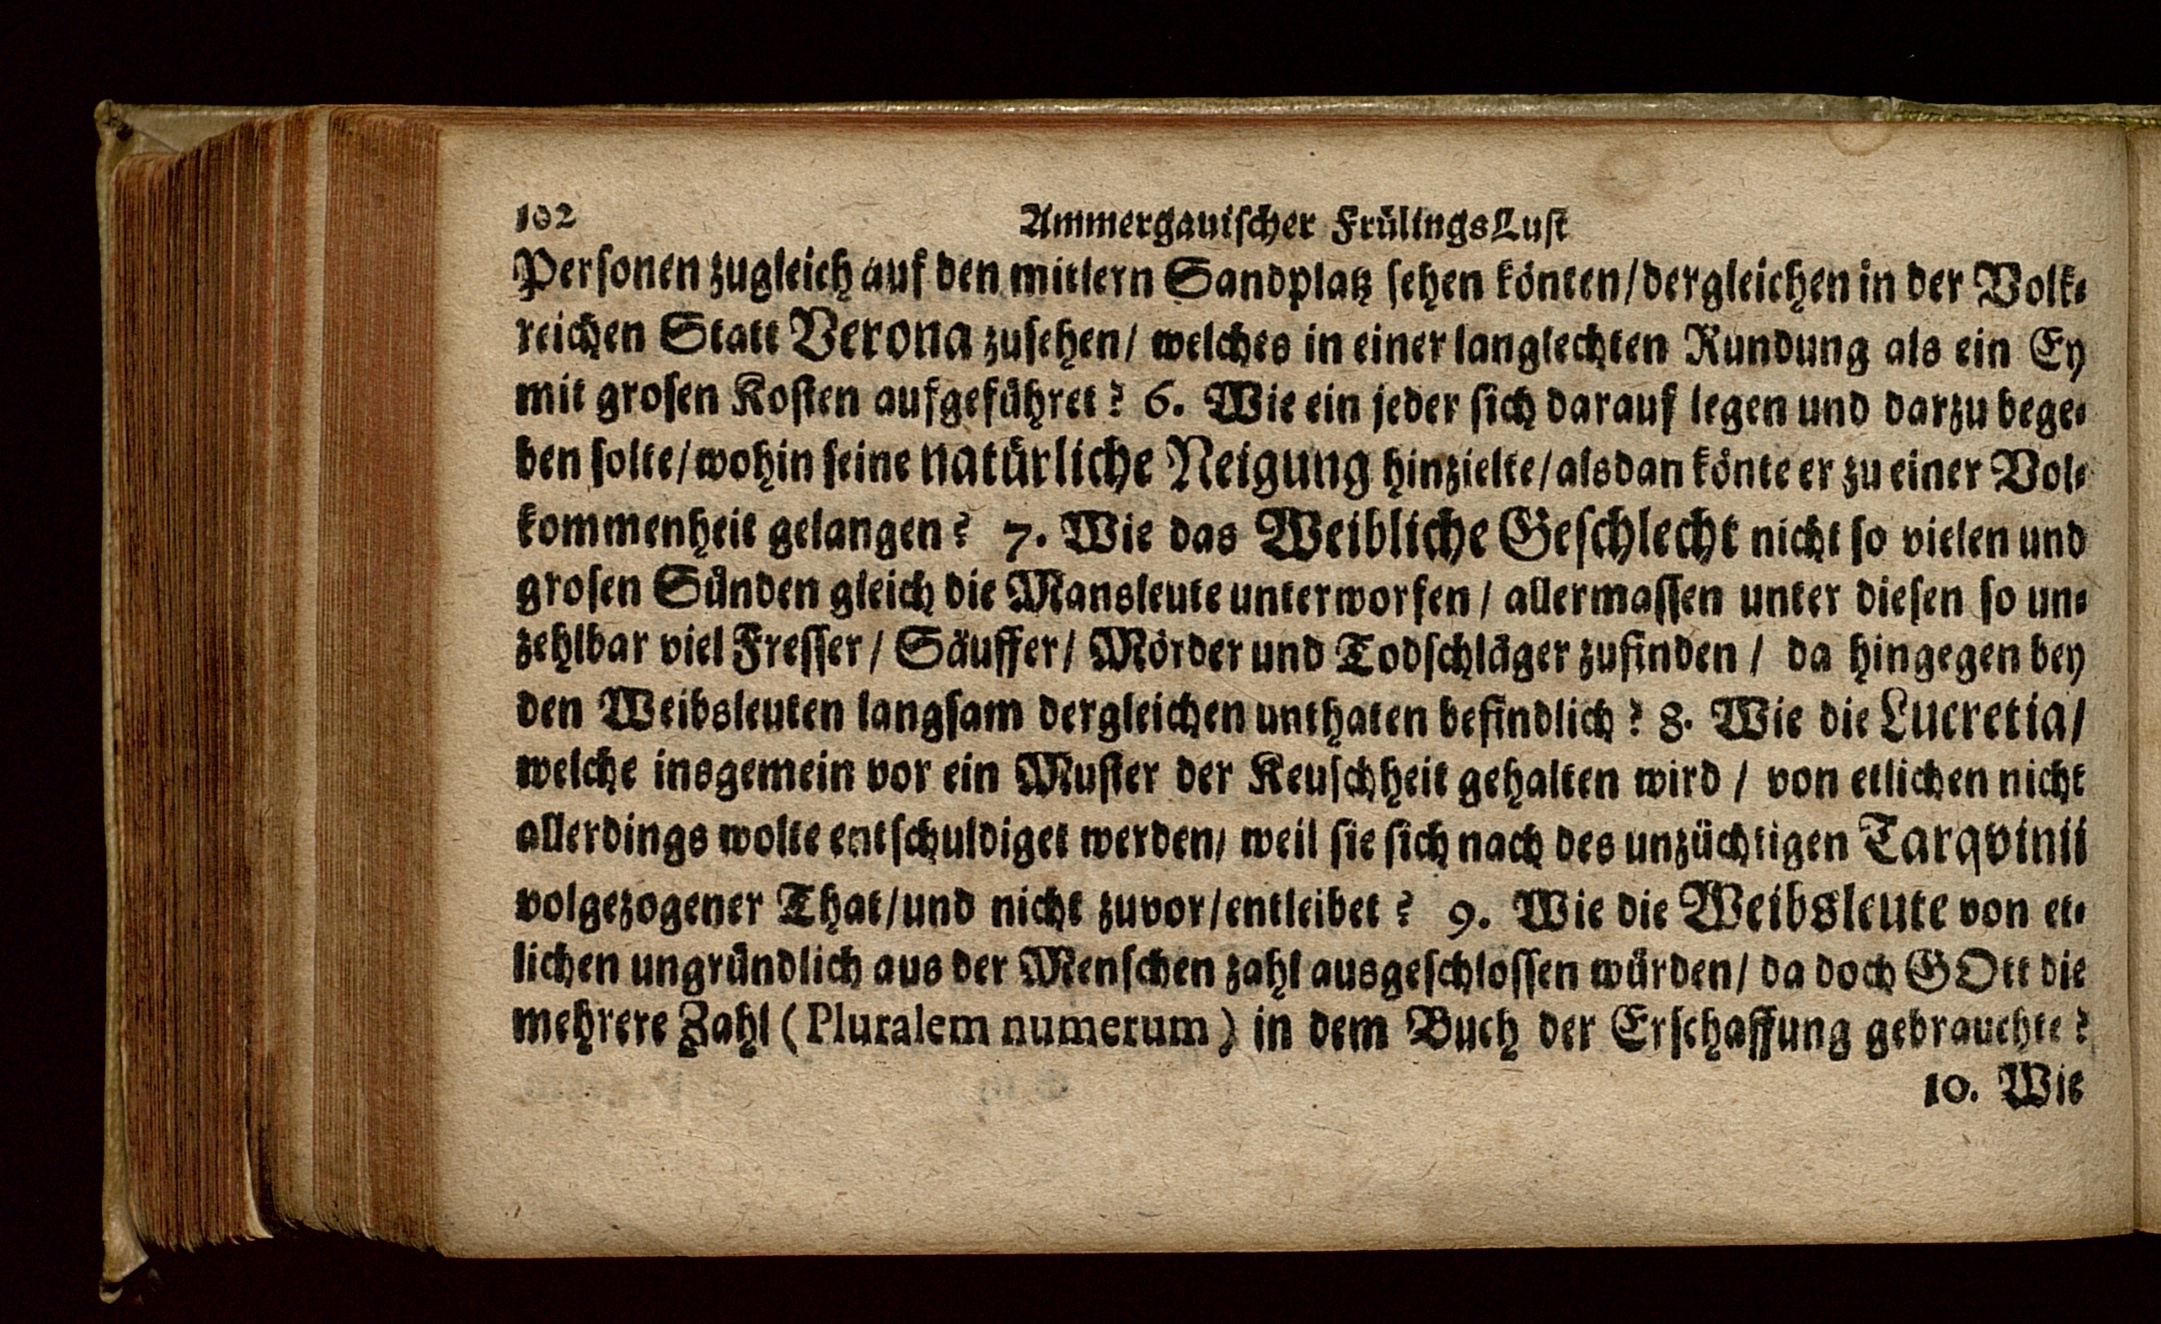 102 Ammergauiſcher FrülingsLuſt
Perſonen zugleich auf den mitlern Sandplatz ſehen könten/dergleichen in der Volk⸗
reichen Statt Verona zuſehen/ welches in einer langlechten Rundung als ein Ey
mit groſen Koſten aufgeführet? 6. Wie ein jeder ſich darauf legen und darzu bege⸗
ben ſolte/wohin ſeine natürliche Neigung hinzielte/alsdan könte er zu einer Vol⸗
kommenheit gelangen? 7. Wie das Weibliche Geſchlecht nicht ſo vielen und
groſen Sünden gleich die Mansleute unterworfen / allermaſſen unter dieſen ſo un⸗
zehlbar viel Freſſer / Säuffer/ Mörder und Todſchläger zufinden / da hingegen bey
den Weibsleuten langſam dergleichen unthaten befindlich? 8. Wie die Lucretia/
welche insgemein vor ein Muſter der Keuſchheit gehalten wird / von etlichen nicht
allerdings wolte entſchuldiget werden/ weil ſie ſich nach des unzüchtigen Tarqvinii
volgezogener That/und nicht zuvor/entleibet? 9. Wie die Weibsleute von et⸗
lichen ungründlich aus der Menſchen zahl ausgeſchloſſen würden/ da doch GOtt die
mehrere Zahl (Pluralem numerum) in dem Buch der Erſchaffung gebrauchte?
10. Wie